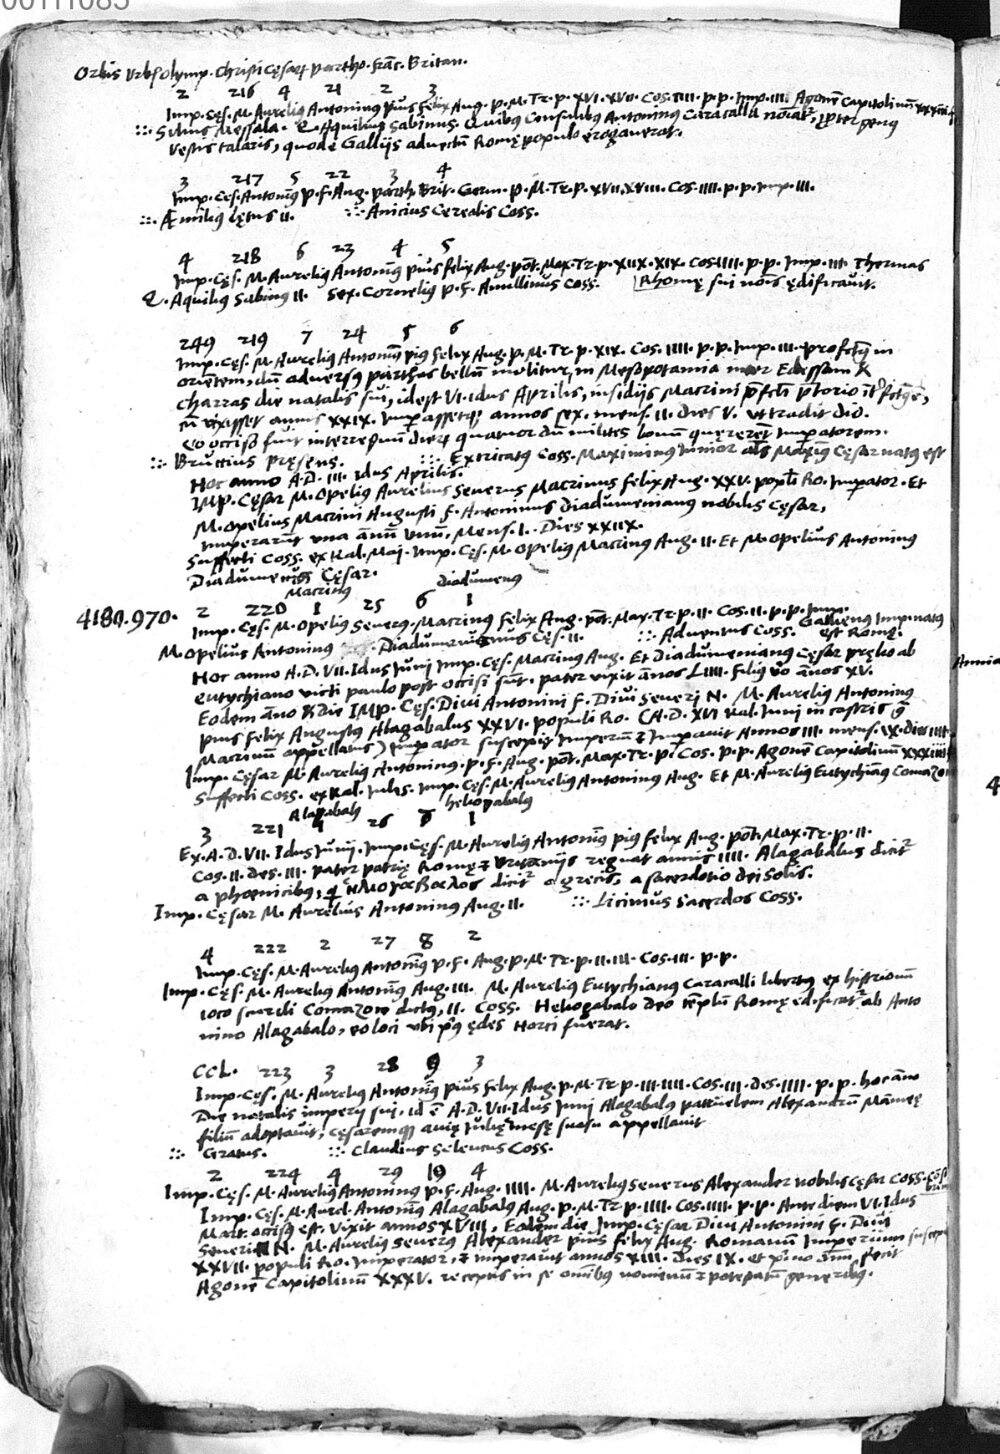 00111083
Orbis Urbis olymp. Christi Cęsar partho. franc. Britan.
2 216 4 21 2 3
Imp. Cęs. M. Aurelius Antoninus Pius felix Aug. p. M. Tr. p. XVI. XVII. Cos. IIII. p. p. Imp. III. Agonem Capitolinum
Silius Messala. Q. Aquilius Sabinus. Quibus Consulibus Antoninus Caracalla
vestis talaris, quod e Gallijs advectum Romę populo erogaverat.
3 217 5 22 3 4
Imp. Cęs. Antoninꝯ p. F. Aug. parth. Brit. Germ. p. M. Tr. p. XVII. XVIII. Cos. IIII. p. p. Imp. III.
Æmiliꝯ Lętus II. Anicius Cerealis Coss.
4 218 6 23 4 5
Imp. Cęs. M. Aureliꝯ Antoninꝯ pius felix Aug. pot. Max. Tr. p. XIIX. XIX. Cos. IIII. p. p. Imp. III. Thermas
Q. Aquiliꝯ Sabinꝯ II. Sex. Corneliꝯ p. F. Anullinus Coss. Rhomę sui nois ędificavit.
249 219 7 24 5 6
Imp. Cęs. M. Aureliꝯ Antoninꝯ piꝯ felix Aug. p. M. Tr. p. XIX. Cos. IIII. p. p. Imp. III. profectꝯ in
orientem, dum adversꝯ parthos bellum molitur, in Mesopotamia inter Edessam &
Charras die natalis sui, idest VI. idus Aprilis, insidijs Macrini
cum vixisset annis XXIX. Imperassetqꝫ annos sex. mens. II. dies V. ut tradit Dio.
Eo occiso fuit interregnum dierum quatuor dum milites bonum quererent Imperatorem.
Bruttius Pręsens. Extricatus Coss. Maximinus Iunior als Maximꝯ Cęsar natus est
Hoc anno A. D. III. Idus Aprilis.
IMP. Cęsar M. Opeliꝯ Aurelius Severus Macrinus felix Aug. XXV. popli Ro. Imperator. Et
M. Opelius Macrini Augusti F. Antoninus Diadumenianus nobilis Cęsar,
Imperarunt una annum unum, Mens. I. Dies XXIIX.
Suffecti Coss. ex Kal. Maij. Imp. Cęs. M. Opeliꝯ Macrinꝯ Aug. II. Et M. Opelius Antoninus
Diadumenus Cęsar.
Macrinꝯ Diadumenꝯ
4180. 970. 2 220 1 25 6 1
Imp. Cęs. M. Opeliꝯ Severꝯ. Macrinꝯ felix Aug. pot. Max. Tr. p. II. Cos. II. p. p. Imp.
Gallienꝯ Imp. natus
M. Opelius Antoninus Diadumenus Cęs. II. Adventus Coss. est Romę.
Hoc anno A. D. VII. Idus Iunij Imp. Cęs. Macrinꝯ Aug. Et Diadumenianꝯ Cęsar prelio ab
Eutychiano victi paulo post occisi sunt. pater vixit anos LIII. filiꝯ vo anos XV.
Annia
Eodem anno & die IMP. Cęs. Divi Antonini F. Divi Severi N. M. Aurelius Antoninus
pius felix Augustus Alagabalus XXVI. populi Ro. (A. D. XVI Kal. Iunij in castris
Macrinum appellatus) Imperator suscepit Imperium & Imperavit Annos III. mens. IX. dies IIII.
Imp. Cęsar M. Aureliꝯ Antoninus. p. F. Aug. pot. Max. Tr. p. Cos. p. p. Agonem Capitolinum
Suffecti Coss. ex Kal. Iulis. Imp. Cęs. M. Aurelius Antoninus Aug. Et M. Aureliꝯ Eutychianꝯ
4
Alagabalꝯ heliogabalꝯ
3 221 26 1
Ex. A. D. VII. Idus Iunij. Imp. Cęs. M. Aureliꝯ Antoninꝯ piꝯ felix Aug. pot. Max. Tr. p. II.
Cos. II. Des. III. pater patrię Romę & regnat annis IIII. Alagabalus dicitr
a phoenicibus, dicitr a grecis, a sacerdotio dei Solis.
Imp. Cęsar M. Aurelius Antoninus Aug. II. Licinius Sacerdos Coss.
4 222 2 27 8 2
Imp. Cęs. M. Aureliꝯ Antoninꝯ p. F. Aug. p. M. Tr. p. II. III. Cos. III. p. p.
Imp. Cęs. M. Aureliꝯ Antoninꝯ Aug. III. M. Aureliꝯ Eutychianꝯ Caracalli libertꝯ ex histrionum
Comazon dictꝯ, II. Coss. Heliogabalo deo templum Romę edificatr ab Anto
nino Alagabalo, eo loci ubi prius ędes Horci fuerat.
CCL. 223 3 28 9 3
Imp. Cęs. M. Aureliꝯ Antoninꝯ pius felix Aug. p. M. Tr. p. III. IIII. Cos. III. des. IIII. p. p. hoc ano
Die natalis imperij sui, id e A. D. VII. Idus Iunij Alagabalꝯ patruelem Alexandrum Mameę
filium adoptavit, cęsaremqꝫ avię Iulię Mesę suasu appellavit
Gratus. Claudius Seleucus Coss.
2 224 4 29 10 4
Imp. Cęs. M. Aureliꝯ Antoninꝯ p. F. Aug. IIII. M. Aureliꝯ Severus Alexander nobilis Cęsar Coss.
Imp. Cęs. M. Aurel. Antoninꝯ Alagabalꝯ Aug. p. M. Tr. p. IIII. Cos. IIII. p. p. Ante diem VI. Idus
Mart. occisꝯ est. vixit annos XVIII, Eodem die Imp. Cęsar Divi Antonini F. Divi
Severi N. M. Aurelius Severꝯ Alexander pius felix Aug. Romanum Imperium
XXVII. populi Ro. Imperator, & imperavit annos XIII. Dies IX. et primo anno, fecit
Agonem Capitolinum XXXV. receptis in se omibus nominum & potestatum generibꝯ.